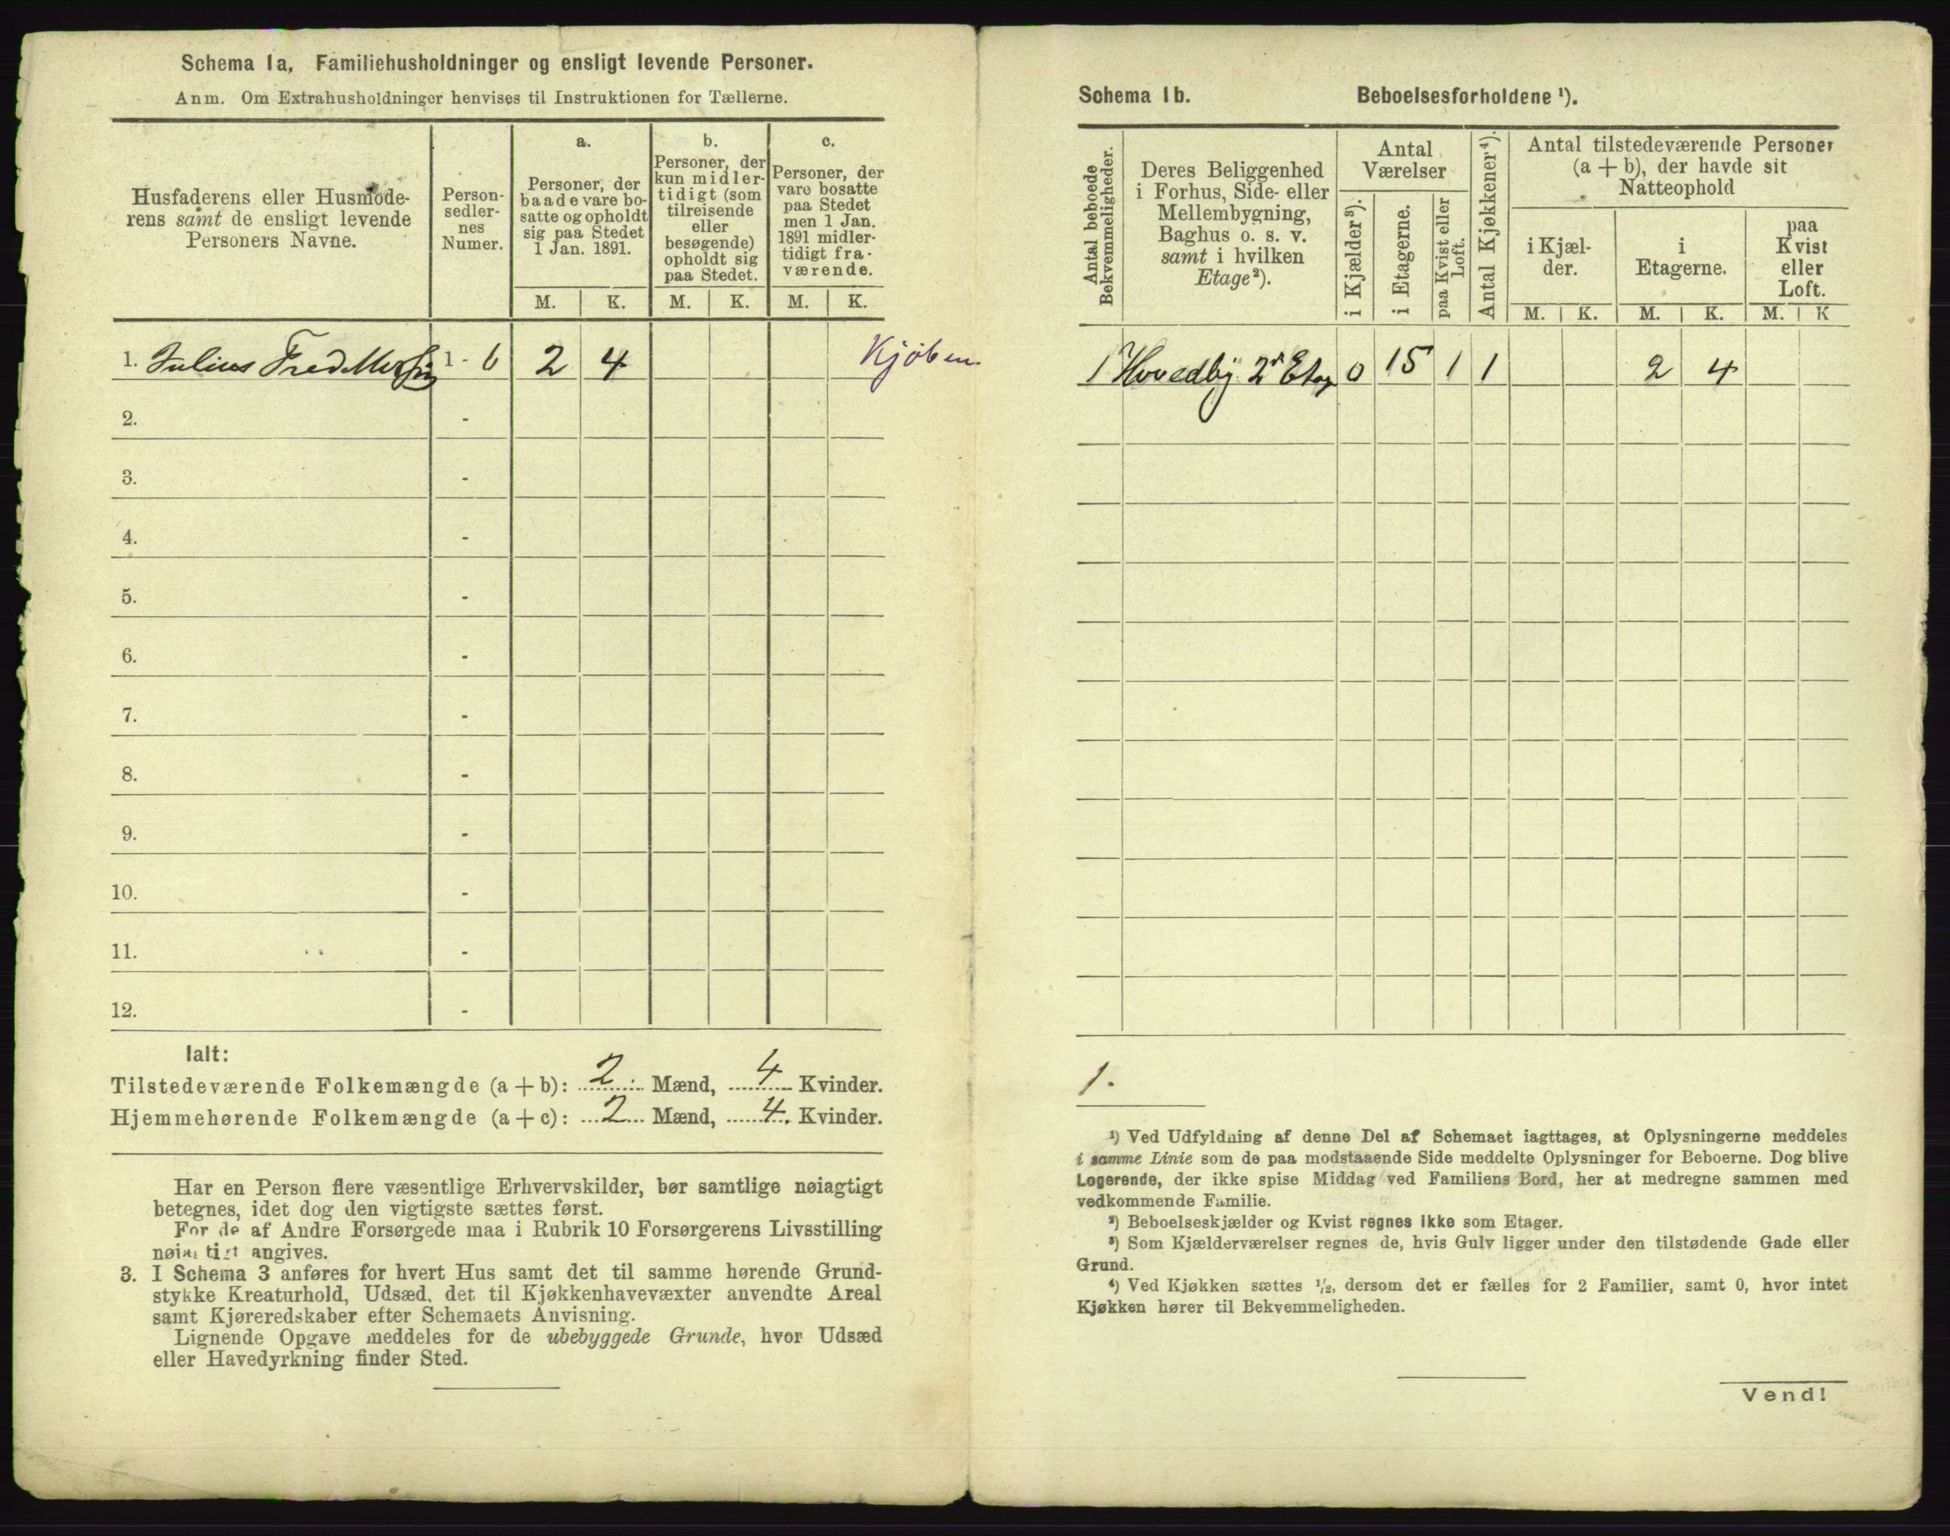 Schema 1a, Familiehusholdninger og ensligt levende Personer.
Anm. Om Extrahusholdninger henvises til Instruktionen for Tællerne.
Husfaderens eller Husmode-
rens samt de ensligt levende
Personers Navne.
Person-
sedler-
nes
Numer.
a.
Personer, der
baade vare bo-
satte og opholdt
sig paa Stedet
1 Jan. 1891.
b.
Personer, der
kun midler-
tidigt (som
tilreisende
eller
besøgende)
opholdt sig
paa Stedet.
c.
Personer, der
vare bosatte
paa Stedet
men 1 Jan.
1891 midler-
tidigt fra-
værende.
M. K. M. K. M. K.
1. Julius Fred 1 - 6 2 4 Kjøbm.
2. -
3. -
4. -
5. -
6. -
7. -
8. -
9. -
10. -
11. -
12. -
Ialt:
Tilstedeværende Folkemængde (a+b): 2 Mænd, 4 Kvinder.
Hjemmehørende Folkemængde (a+c): 2 Mænd, 4 Kvinder.
Har en Person flere væsentlige Erhvervskilder, bør samtlige nøiagtigt
betegnes, idet dog den vigtigste sættes først.
For de af Andre Forsørgede maa i Rubrik 10 Forsørgerens Livsstilling
nøiagtigt angives.
3. I Schema 3 anføres for hvert Hus samt det til samme hørende Grund-
stykke Kreaturhold, Udsæd, det til Kjøkkenhavevæxter anvendte Areal
samt Kjøreredskaber efter Schemaets Anvisning.
Lignende Opgave meddeles for de ubebyggede Grunde, hvor Udsæd
eller Havedyrkning finder Sted.
Schema 1b. Beboelsesforholdene ¹).
Antal beboede
Bekvemmeligheder.
Deres Beliggenhed
i Forhus, Side- eller
Mellembygning,
Baghus o. s. v.
samt i hvilken
Etage²).
Antal
Værelser
i Kjælder³).
i Etagerne.
paa Kvist eller
Loft.
Antal Kjøkkener⁴).
Antal tilstedeværende Personer
(a + b), der havde sit
Natteophold
i Kjæl-
der.
i
Etagerne.
paa
Kvist
eller
Loft.
M. K. M. K. M. K
1 Hovedby. 2 Etag 0 15 1 1 2 4
1.
¹) Ved Udfyldning af denne Del af Schemaet iagttages, at Oplysningerne meddeles
i samme Linie som de paa modstaaende Side meddelte Oplysninger for Beboerne. Dog blive
Logerende, der ikke spise Middag ved Familiens Bord, her at medregne sammen med
vedkommende Familie.
²) Beboelseskjælder og Kvist regnes ikke som Etager.
³) Som Kjælderværelser regnes de, hvis Gulv ligger under den tilstødende Gade eller
Grund.
⁴) Ved Kjøkken sættes ½, dersom det er fælles for 2 Familier, samt 0, hvor intet
Kjøkken hører til Bekvemmeligheden.
Vend!